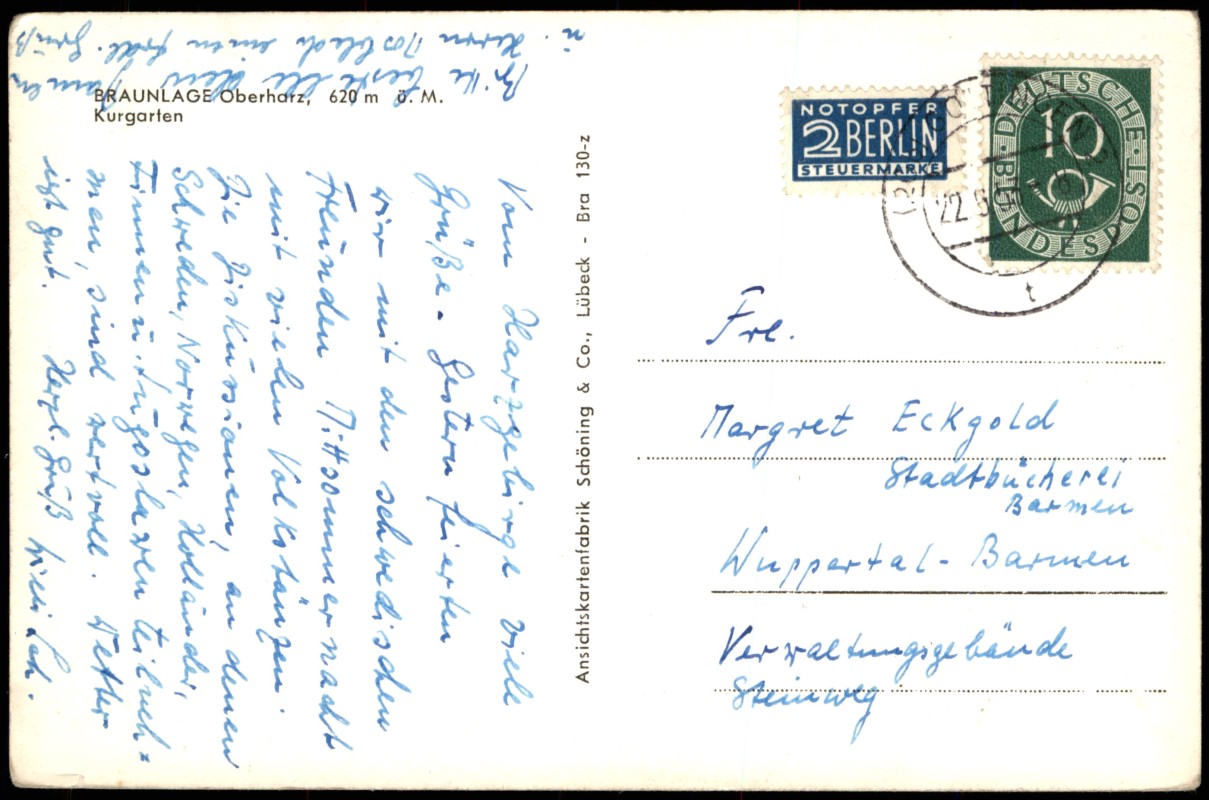 BRAUNLAGE Oberharz, 620 m ü. M.
Kurgarten
Vom Harzgebirge viele
Grüße. Gestern feierten
wir mit den schwedischen
Freunden Mittsommernacht
mit vielen Volkstänzen.
Die Diskussionen, an denen
Schweden, Norweger, Holländer,
Finnen u. Jugoslaven teilneh=
men, sind wertvoll. Wetter
ist gut. Herzl. Gruß
Bitte bestelle den Damen
u. Herrn einen frdl. Gruß
Ansichtskartenfabrik Schöning & Co., Lübeck - Bra 130-z
NOTOPFER
2 BERLIN
STEUERMARKE
DEUTSCHE
BUNDESPOST
10
GÖTTINGEN
22
t
Frl.
Margret Eckgold
Stadtbücherei
Barmen
Wuppertal-Barmen
Verwaltungsgebäude
Steinweg